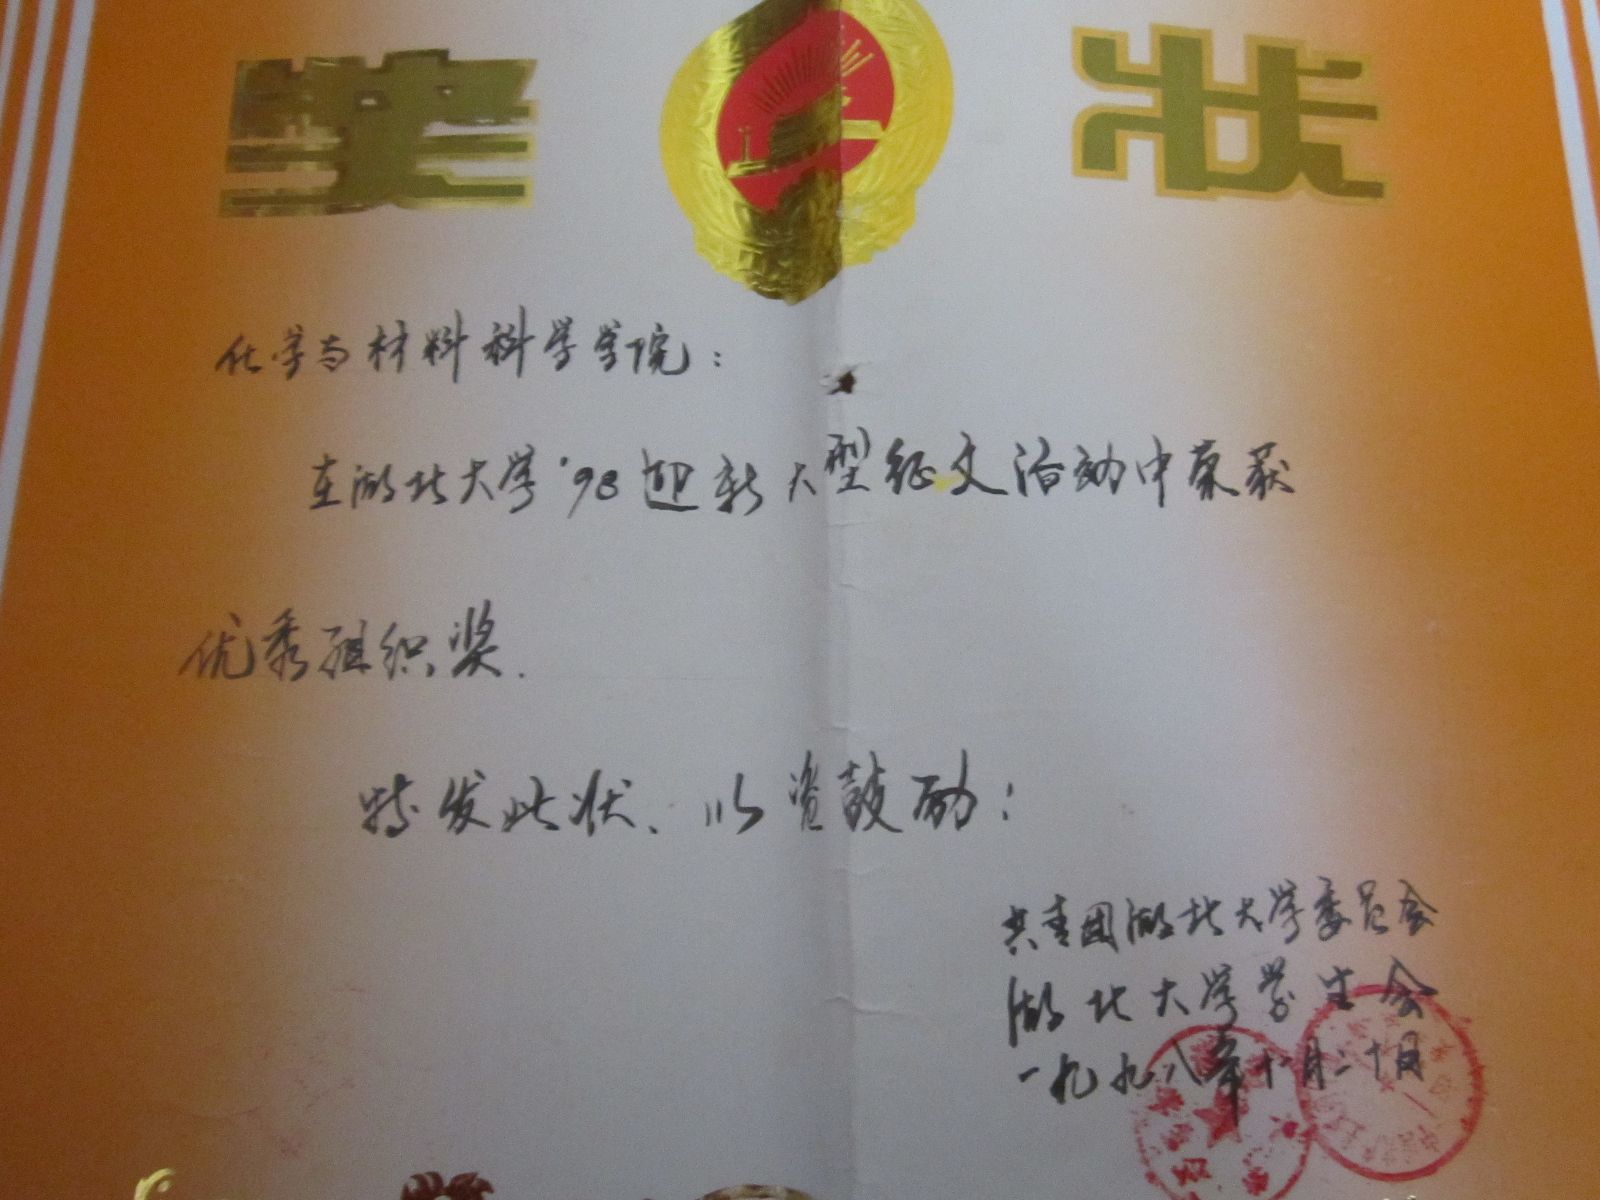 奖状
化学与材料科学学院：
在湖北大学'98迎新大型征文活动中荣获
优秀组织奖.
特发此状、以资鼓励：
共青团湖北大学委员会
湖北大学学生会
一九九八年十一月二十日